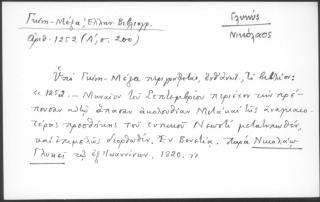 Γκίνη - Μέξα, Ἑλλην. Βιβλιογρ.
Ἀριθ. 1252 (Α', σ. 200)
Γλυκύς
Νικόλαος
Ὑπὸ Γκίνη - Μέξα περιγράφεται, τὸ βιβλίον:
« 1252. – Μηναῖον τοῦ Σεπτεμβρίου περιέχον τὴν πρέ-
πουσαν αὐτῷ ἅπασαν ἀκολουθίαν Μετὰ καὶ τῆς ἀναγκαιο-
τέρας προσθήκης τοῦ τυπικοῦ Νεωστὶ μετατυπωθέν,
καὶ ἐπιμελῶς διορθωθέν. Ἐν Βενετίᾳ. Παρὰ Νικολάῳ
Γλυκεῖ τῷ ἐξ Ἰωαννίνων. 1820. »